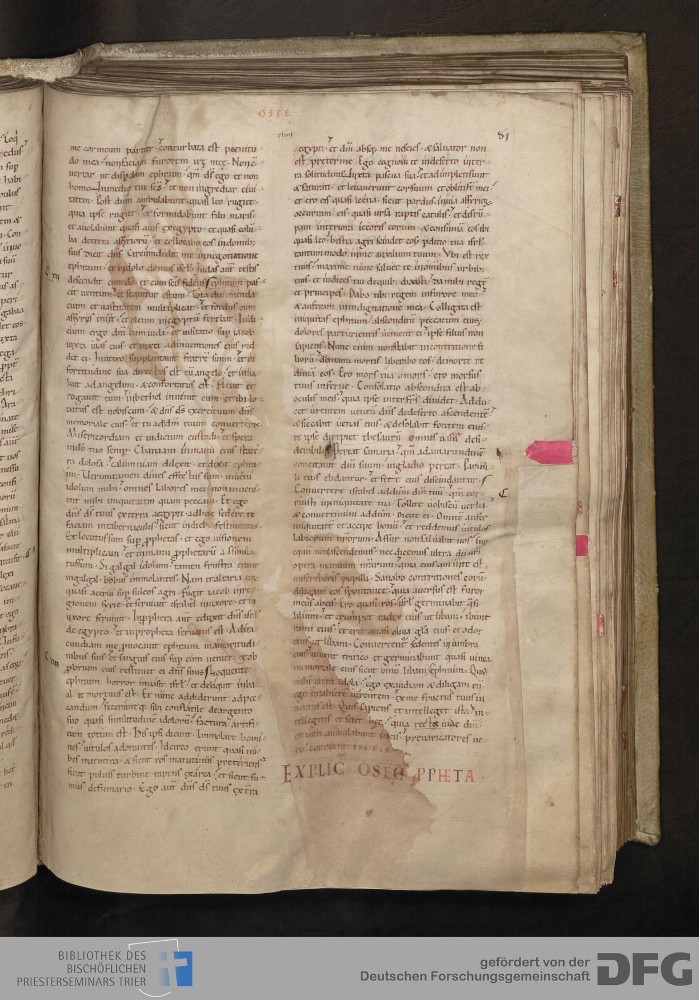 OSEE
81
me cor meum pariter conturbata est
do mea non faciam furorem
vertar ut disperdam ephraim qm ds ego et non
homo In medio tui scs et non ingrediar civi
tatem Post dnm ambulabunt quasi leo rugiet
quia ipse rugiet et formidabunt filii maris
et avolabunt quasi avis ex egypto et quasi colu
ba de terra assyriorum et collocabo eos in domib;
suis dicit dns Circumdedit me in negatione
ephraim et in dolo domus isrl Iudas aut testis
descendit cum do et cum scis fidelis Ephraim pas
cit ventum et sequitur estum tota die mendaciu
et vastitatem multiplicat et fedus cum
assyriis iniit et oleum in egyptu ferebat Iudi
cium ergo dni cum iuda et visitatio sup iacob
iuxta vias eius et iuxta adinventiones eius red
det ei In utero supplantavit fratre suum et in
fortitudine sua directus est cu angelo et inva
luit ad angelum et confortatus est flevit et
rogavit eum in bethel invenit eum et ibi lo
cutus est nobiscum et dns ds exercituum dns
memoriale eius et tu ad dm tuum converteris
Misericordiam et iudicium custodi et spera
in do tuo semp Chanaan in manu eius state
ra dolosa calumniam dilexit et dixit ephra
im Verumtamen dives effectus sum inveni
idolum mihi omnes labores mei non inveni
ent mihi iniquitatem quam peccavi Et ego
dns ds tuus ex terra aegypti adhuc sedere te
faciam in tabernaculis sicut in dieb; festivitatis
Et locutus sum sup pphetas et ego visionem
multiplicavi et in manu pphetaru assimila
tus sum Si galgal idolum tamen frustra erant
in galgal bobus immolantes Nam et altaria eoz
quasi acervi sup sulcos agri Fugit iacob in re
gionem syrie et servivit israhel in uxore et in
uxore servavit In ppheta aut eduxit dns isrl
de egypto et in ppheta servatus est Ad ira
cundiam me pvocavit ephraim in amaritudi
nibus suis et sanguis eius sup eum veniet et ob
pbrium eius restituet ei dns suus Loquente
ephraim horror invasit isrl et deliquit in ba
al et mortuus est Et nunc addiderunt ad pec
candum feceruntq; sibi conflatile de argento
suo quasi similitudine idoloru factura artifi
cum totum est His ipsi dicunt Immolate homi
nes vitulos adorantes Idcirco erunt quasi nu
bes matutina et sicut ros matutinus pteriens
sicut pulvis turbine raptus ex area et sicut fu
mus de fumario Ego aut dns ds tuus ex tra
egypti et dm absq; me nescies et salvator non
est preter me Ego cognovi te in deserto in ter
ra solitudinis Iuxta pascua sua et adimpleti sunt
et saturati et levaverunt cor suum et obliti st mei
et ero eis quasi leena sicut pardus in via assyrioz
occurram eis quasi ursa raptis catulis et dirru
pam interiora iecoris eorum et consumam eos ibi
quasi leo bestia agri scindet eos pditio tua isrl
tantummodo in me auxilium tuum Ubi est rex
tuus maxime nunc salvet te in omnibus urbib;
tuis et iudices tui de quib; dixisti da mihi rege
et principes Dabo tibi regem in furore meo
et auferam in indignatione mea Colligata est
iniquitas ephraim absconditu peccatum eius
dolores parturientis venient ei ipse filius non
sapiens Nunc enim non stabit in contritione fi
lioru de manu mortis liberabo eos de morte re
dimam eos Ero mors tua o mors ero morsus
tuus inferne Consolatio abscondita est ab
oculis meis quia ipse inter frs dividet Addu
cet urentem ventu dns de deserto ascendente
et siccabit venas eius et desolabit fontem eius
et ipse diripiet thesauru omnis vasis desi
derabilis Pereat samaria qm ad amaritudine
concitavit dm suum in gladio pereat Parvu
li eius elidantur et fete eius discindantur
Convertere israhel ad dnm dm tuu qm cor
ruisti in iniquitate tua Tollite vobiscu verba
et convertimini ad dnm dicite ei Omne aufer
iniquitate et accipe bonu et reddemus vitulos
labiorum nrorum Assur non salvabit nos sup
equu non ascendemus nec dicemus ultra dii nri
opera manuum nrarum quia eius qui in te est
misereberis pupilli Sanabo contritiones eoru
diligam eos spontanee quia aversus est furor
meus ab eis Ero quasi ros isrl germinabit qsi
lilium et erumpet radix eius ut libani ibunt
rami eius et erit quasi oliva gla eius et odor
eius ut libani Convertent sedentes in umbra
eius vivent tritico et germinabunt quasi vinea
memoriale eius sicut vinu libani Ephraim Quid
mihi ultra idola ego exaudiam et dirigam eu
ego ut abiete virentem ex me fructus tuus in
ventus est Quis sapiens et intelleget ista in
tellegens et sciet hec quia recte vie dni
et iusti ambulabunt in eis prevaricatores ve
ro corruent in eis
EXPLIC OSEE PPHETA
BIBLIOTHEK DES
BISCHÖFLICHEN
PRIESTERSEMINARS TRIER
gefördert von der
Deutschen Forschungsgemeinschaft
DFG